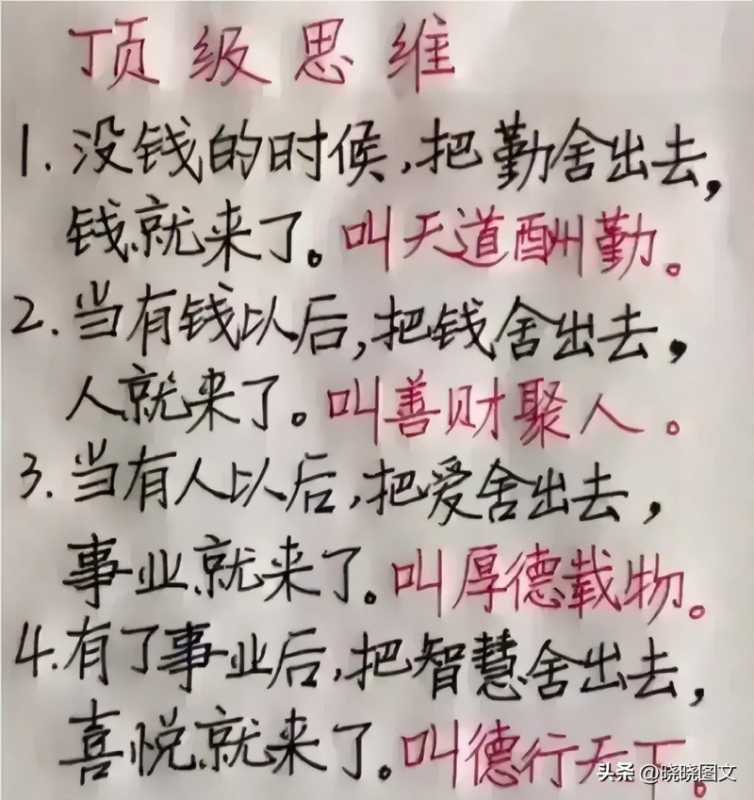 顶级思维
1. 没钱的时候,把勤舍出去,
钱就来了。叫天道酬勤。
2. 当有钱以后,把钱舍出去,
人就来了。叫善财聚人。
3. 当有人以后,把爱舍出去,
事业就来了。叫厚德载物。
4. 有了事业后,把智慧舍出去,
喜悦就来了。叫德行天下。
头条 @晓晓图文